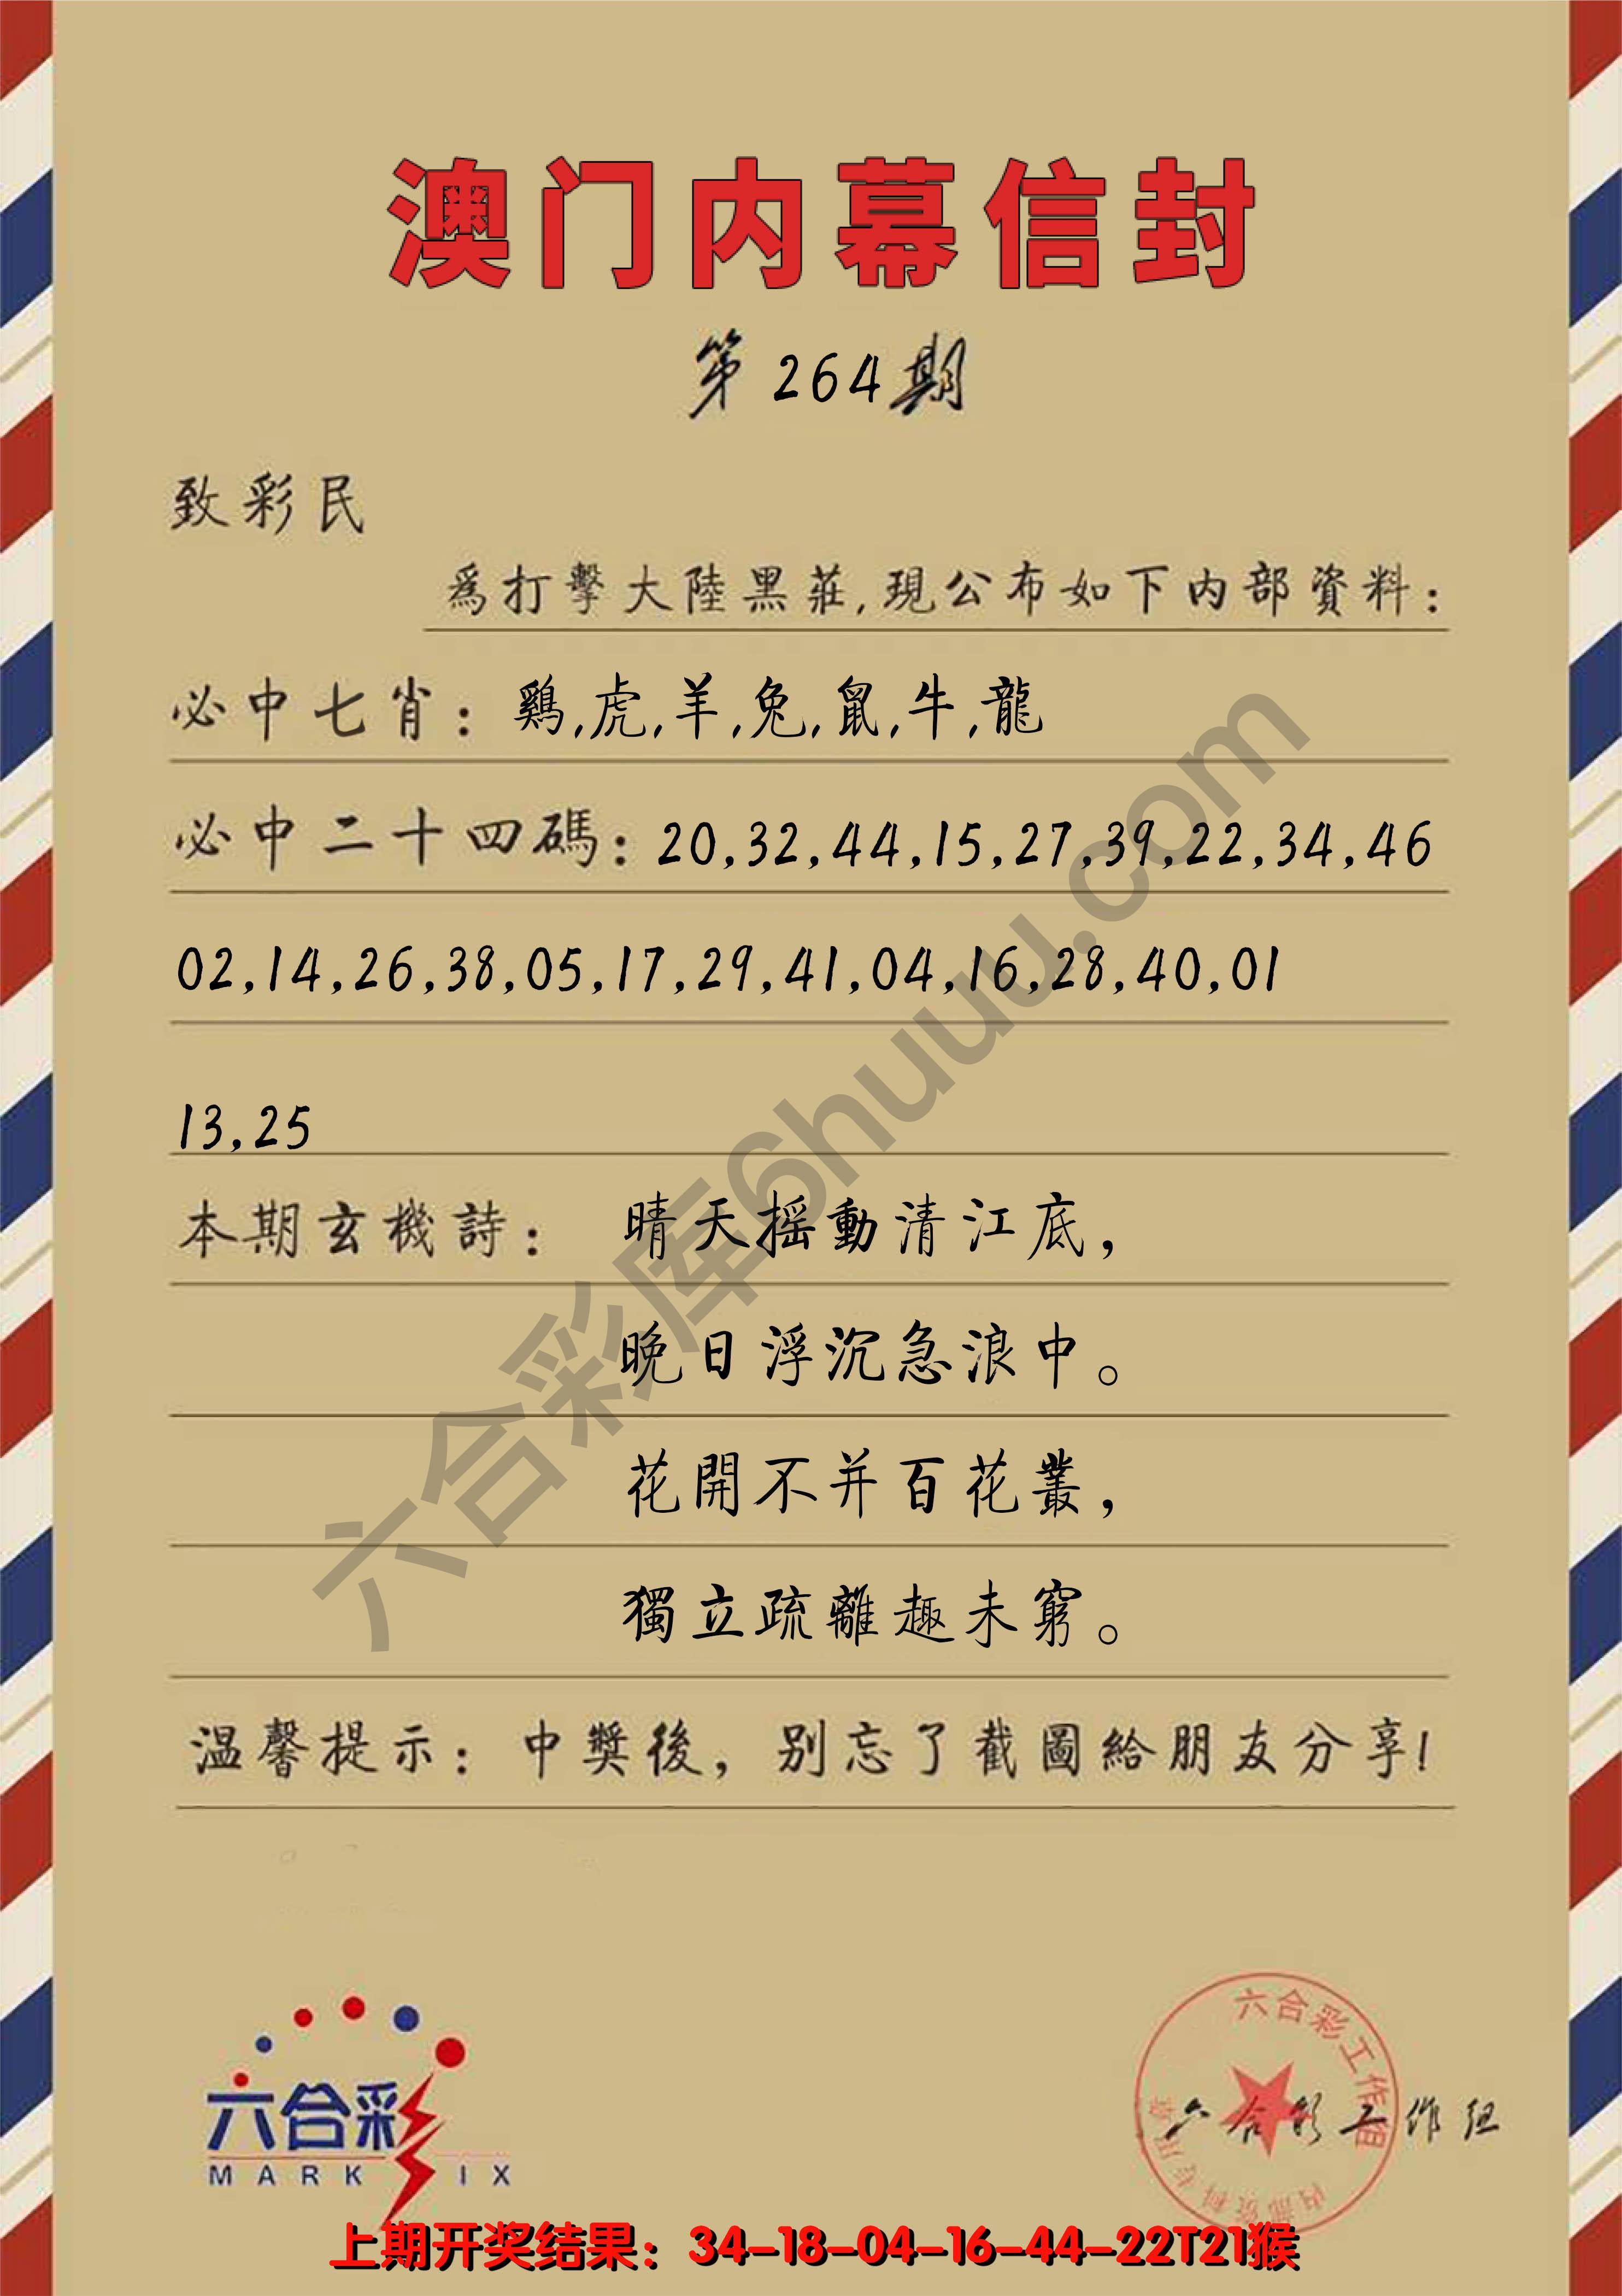 澳门内幕信封
第264期
致彩民
爲打擊大陸黑莊,現公布如下内部資料:
必中七肖: 鷄,虎,羊,兔,鼠,牛,龍
必中二十四碼: 20,32,44,15,27,39,22,34,46
02,14,26,38,05,17,29,41,04,16,28,40,01
13,25
本期玄機詩: 晴天摇動清江底,
晚日浮沉急浪中。
花開不并百花叢,
獨立疏離趣未窮。
温馨提示: 中獎後, 别忘了截圖給朋友分享!
六合彩库6huuu.com
六合彩
MARK IX
六合彩工作组
六合彩工作组
上期开奖结果: 34-18-04-16-44-22T21猴